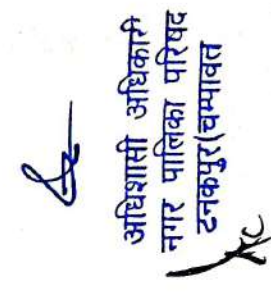 अधिशासी अधिकारी
नगर पालिका परिषद
टनकपुर(चम्पावत)